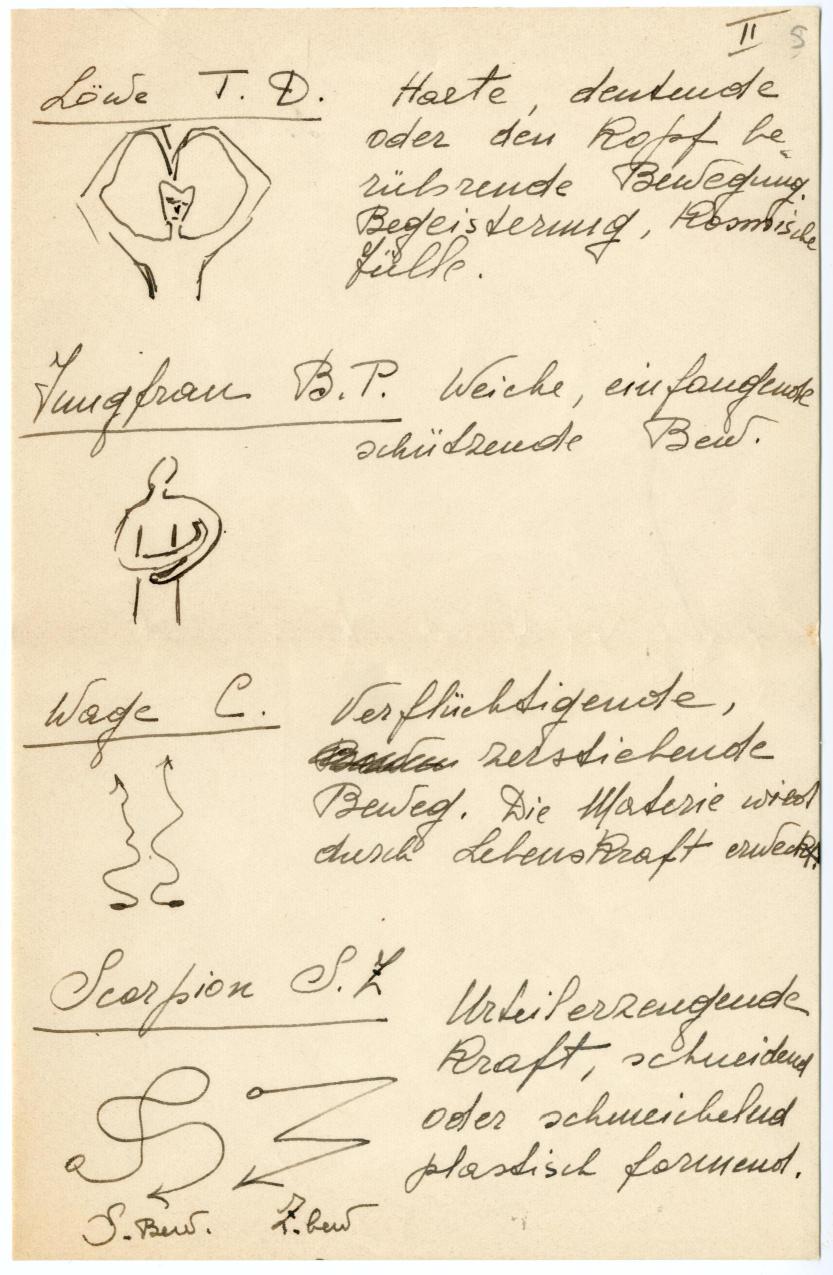 II 8
Löwe T. D. Harte, deutende
oder den Kopf be-
rührende Bewegung.
Begeisterung, Kosmische
Fülle.
Jungfrau B. P. Weiche, einfangende
schützende Bew.
Wage C. Verflüchtigende,
zerstiebende
Beweg. Die Materie wird
durch Lebenskraft erweckt.
Scorpion S. Z
Urteilerzeugende
Kraft, schneidend
oder schmeichelnd
plastisch formend.
S. Bew. Z. bew